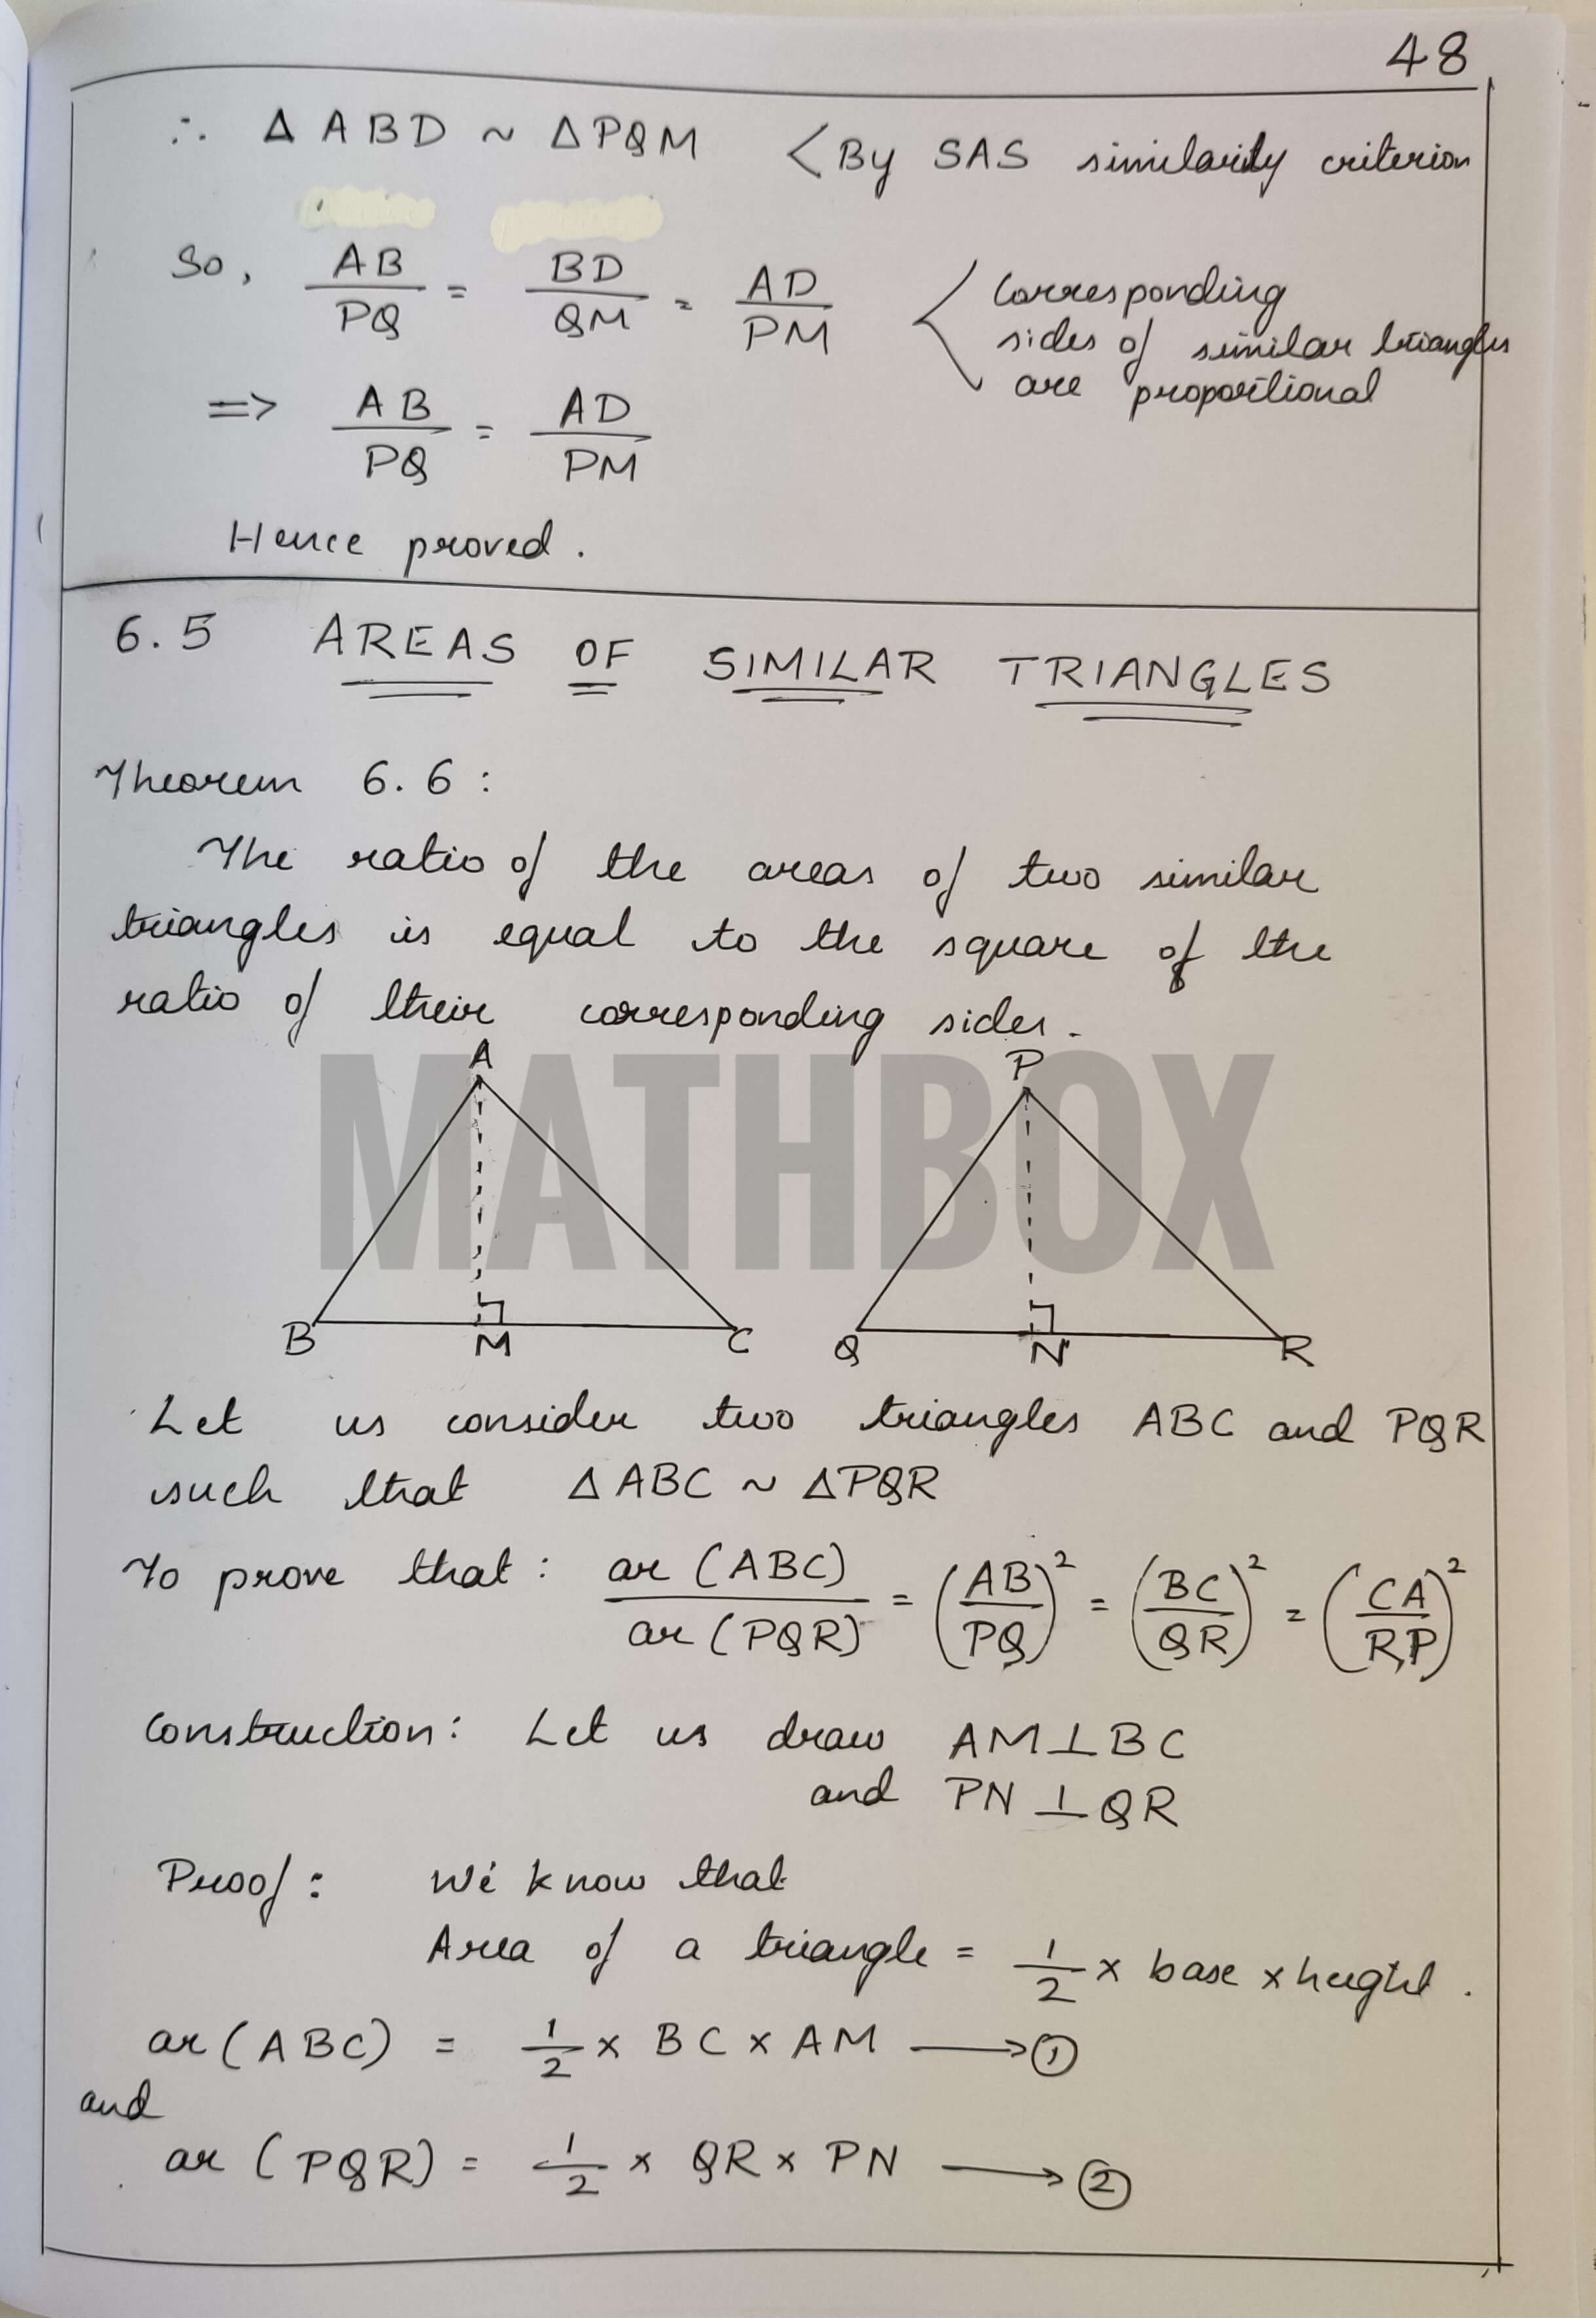 48
∴ Δ ABD ~ Δ PQM < By SAS similarity criterion
So, AB/PQ = BD/QM = AD/PM < Corresponding
sides of similar triangles
are proportional
=> AB/PQ = AD/PM
Hence proved.
6.5 AREAS OF SIMILAR TRIANGLES
Theorem 6.6:
The ratio of the areas of two similar
triangles is equal to the square of the
ratio of their corresponding sides.
MATHBOX
A P
B M C Q N R
Let us consider two triangles ABC and PQR
such that Δ ABC ~ Δ PQR
To prove that: ar (ABC)/ar (PQR) = (AB/PQ)² = (BC/QR)² = (CA/RP)²
Construction: Let us draw AM⊥BC
and PN⊥QR
Proof: We know that
Area of a triangle = 1/2 × base × height.
ar (ABC) = 1/2 × BC × AM ⟶ ①
and
ar (PQR) = 1/2 × QR × PN ⟶ ②